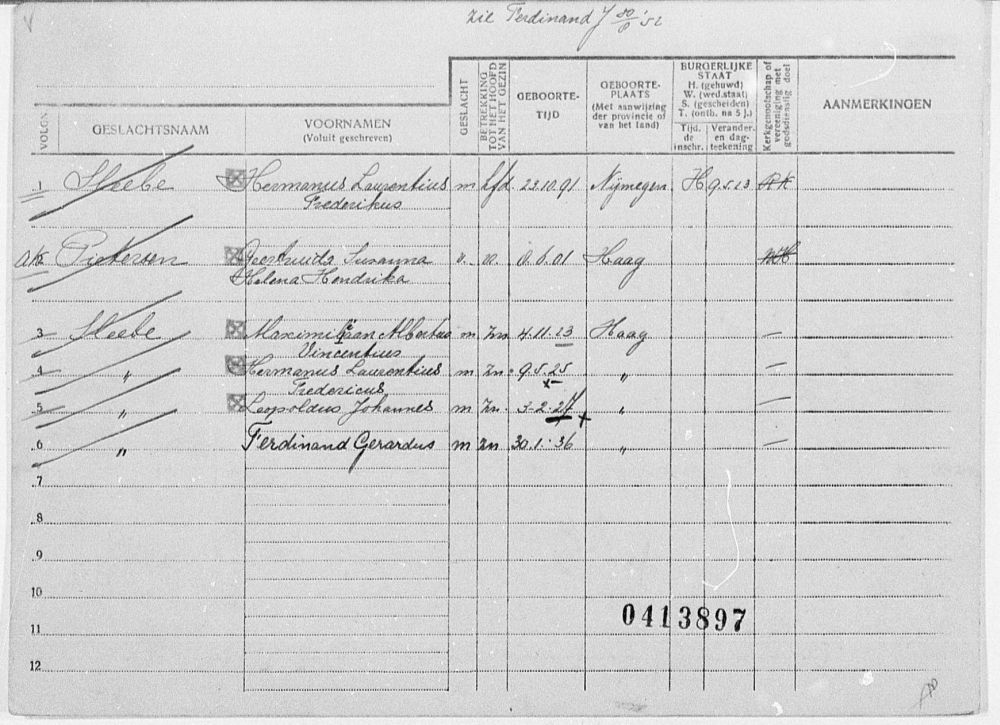 zie Ferdinand
VOLGN.
GESLACHTSNAAM
VOORNAMEN
(Voluit geschreven)
GESLACHT
BETREKKING
TOT HET HOOFD
VAN HET GEZIN
GEBOORTE-
TIJD
GEBOORTE-
PLAATS
(Met aanwijzing
der provincie of
van het land)
BURGERLIJKE
STAAT
H. (gehuwd)
W. (wed.staat)
S. (gescheiden)
T. (ontb. na 5 j.).
Tijd.
de
inschr.
Verander.
en dag-
teekening
Kerkgenootschap of
vereeniging met
godsdienstig doel
AANMERKINGEN
1 Sleebe Hermanus Laurentius m hfd. 23.10.91 Nijmegen H 9.5.23 RK
Frederikus
Pieterson Geertruida Susanna v. v. Haag NH
Helena Hendrika
3 Sleebe Maximiliaan Albertus m Zn 4.11.23 Haag —
Vincentius
4 " Hermanus Laurentius m Zn. 9.5.25 " —
Fredericus
5 " Leopoldus Johannes m Zn. 3.2.27 " —
6 " Ferdinand Gerardus m Zn 30.1.36 " —
7
8
9
10
0413897
11
12